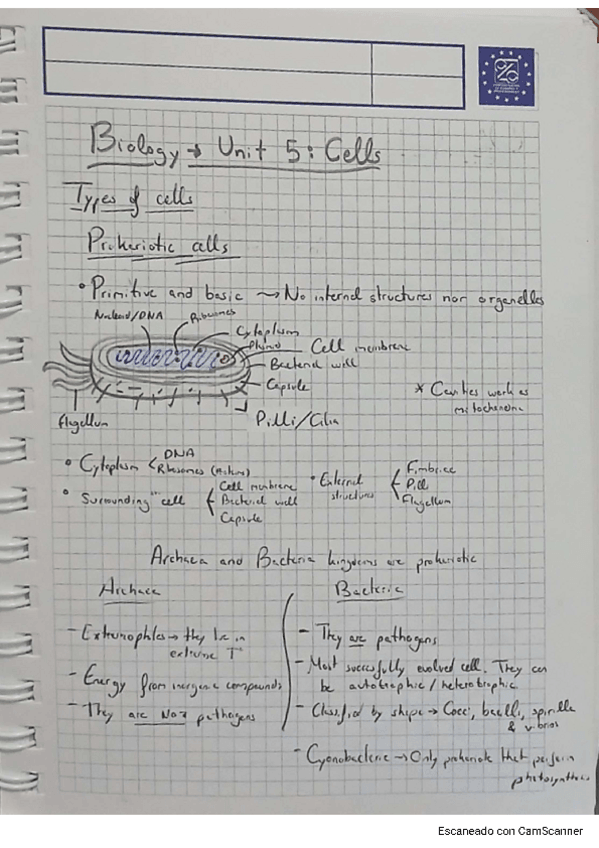 Biology → Unit 5: Cells
Types of cells
Prokeriotic cells
• Primitive and basic → No internal structures nor organelles
Nucleoid/DNA
Ribosomes
Cytoplasm
Plasmid
Cell membrane
Bacterial wall
Capsule
* Cavities work as
mitochondria
Flagellum
Pilli/Cilia
• Cytoplasm < DNA
Ribosomes
• Surrounding cell
Cell membrane
Bacterial wall
Capsule
• External
structures
Fimbriae
Pilli
Flagellum
Archaea and Bacteria kingdoms are prokeriotic
Archaea
- Extremophiles → they live in
extreme Tª
- Energy from inorganic compounds
- They are NOT pathogens
Bacteria
- They are pathogens
- Most successfully evolved cell. They can
be autotrophic / heterotrophic
- Classified by shape → Cocci, bacilli, spirilla
& vibrios
- Cyanobacteria → Only prokeriote that perform
photosynthesis
Escaneado con CamScanner